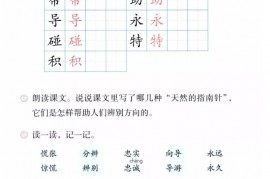 帮 帮 助 助
导 导 永 永
碰 碰 特 特
积 积
朗读课文。说说课文里写了哪几种“天然的指南针”，
它们是怎样帮助人们辨别方向的。
读一读，记一记。
慌张 分辨 忠实 向导 永远
chéng
惊慌 辨别 忠诚 导游 永久